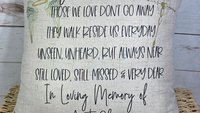 THOSE WE LOVE DON'T GO AWAY
THEY WALK BESIDE US EVERYDAY
UNSEEN, UNHEARD, BUT ALWAYS NEAR
STILL LOVED, STILL MISSED & VERY DEAR
In Loving Memory of